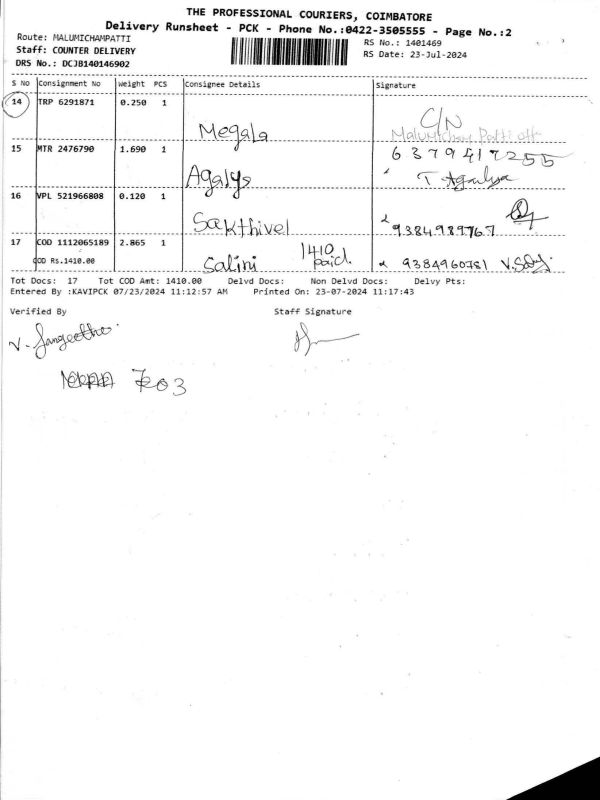 THE PROFESSIONAL COURIERS, COIMBATORE
Delivery Runsheet - PCK - Phone No.:0422-3505555 - Page No.:2
Route: MALUMICHAMPATTI
RS No.: 1401469
Staff: COUNTER DELIVERY
RS Date: 23-Jul-2024
DRS No.: DCJB140146902
S No Consignment No Weight PCS Consignee Details Signature
14 TRP 6291871 0.250 1
Megala
C/N
15 MTR 2476790 1.690 1
6379417255
Agalya
T Agalya
16 VPL 521966808 0.120 1
Sakthivel
9384989767
17 COD 1112065189 2.865 1
COD Rs.1410.00
Salini
1410
paid.
9384960781
Tot Docs: 17 Tot COD Amt: 1410.00 Delvd Docs: Non Delvd Docs: Delvy Pts:
Entered By :KAVIPCK 07/23/2024 11:12:57 AM Printed On: 23-07-2024 11:17:43
Verified By Staff Signature
V. Sangeetha